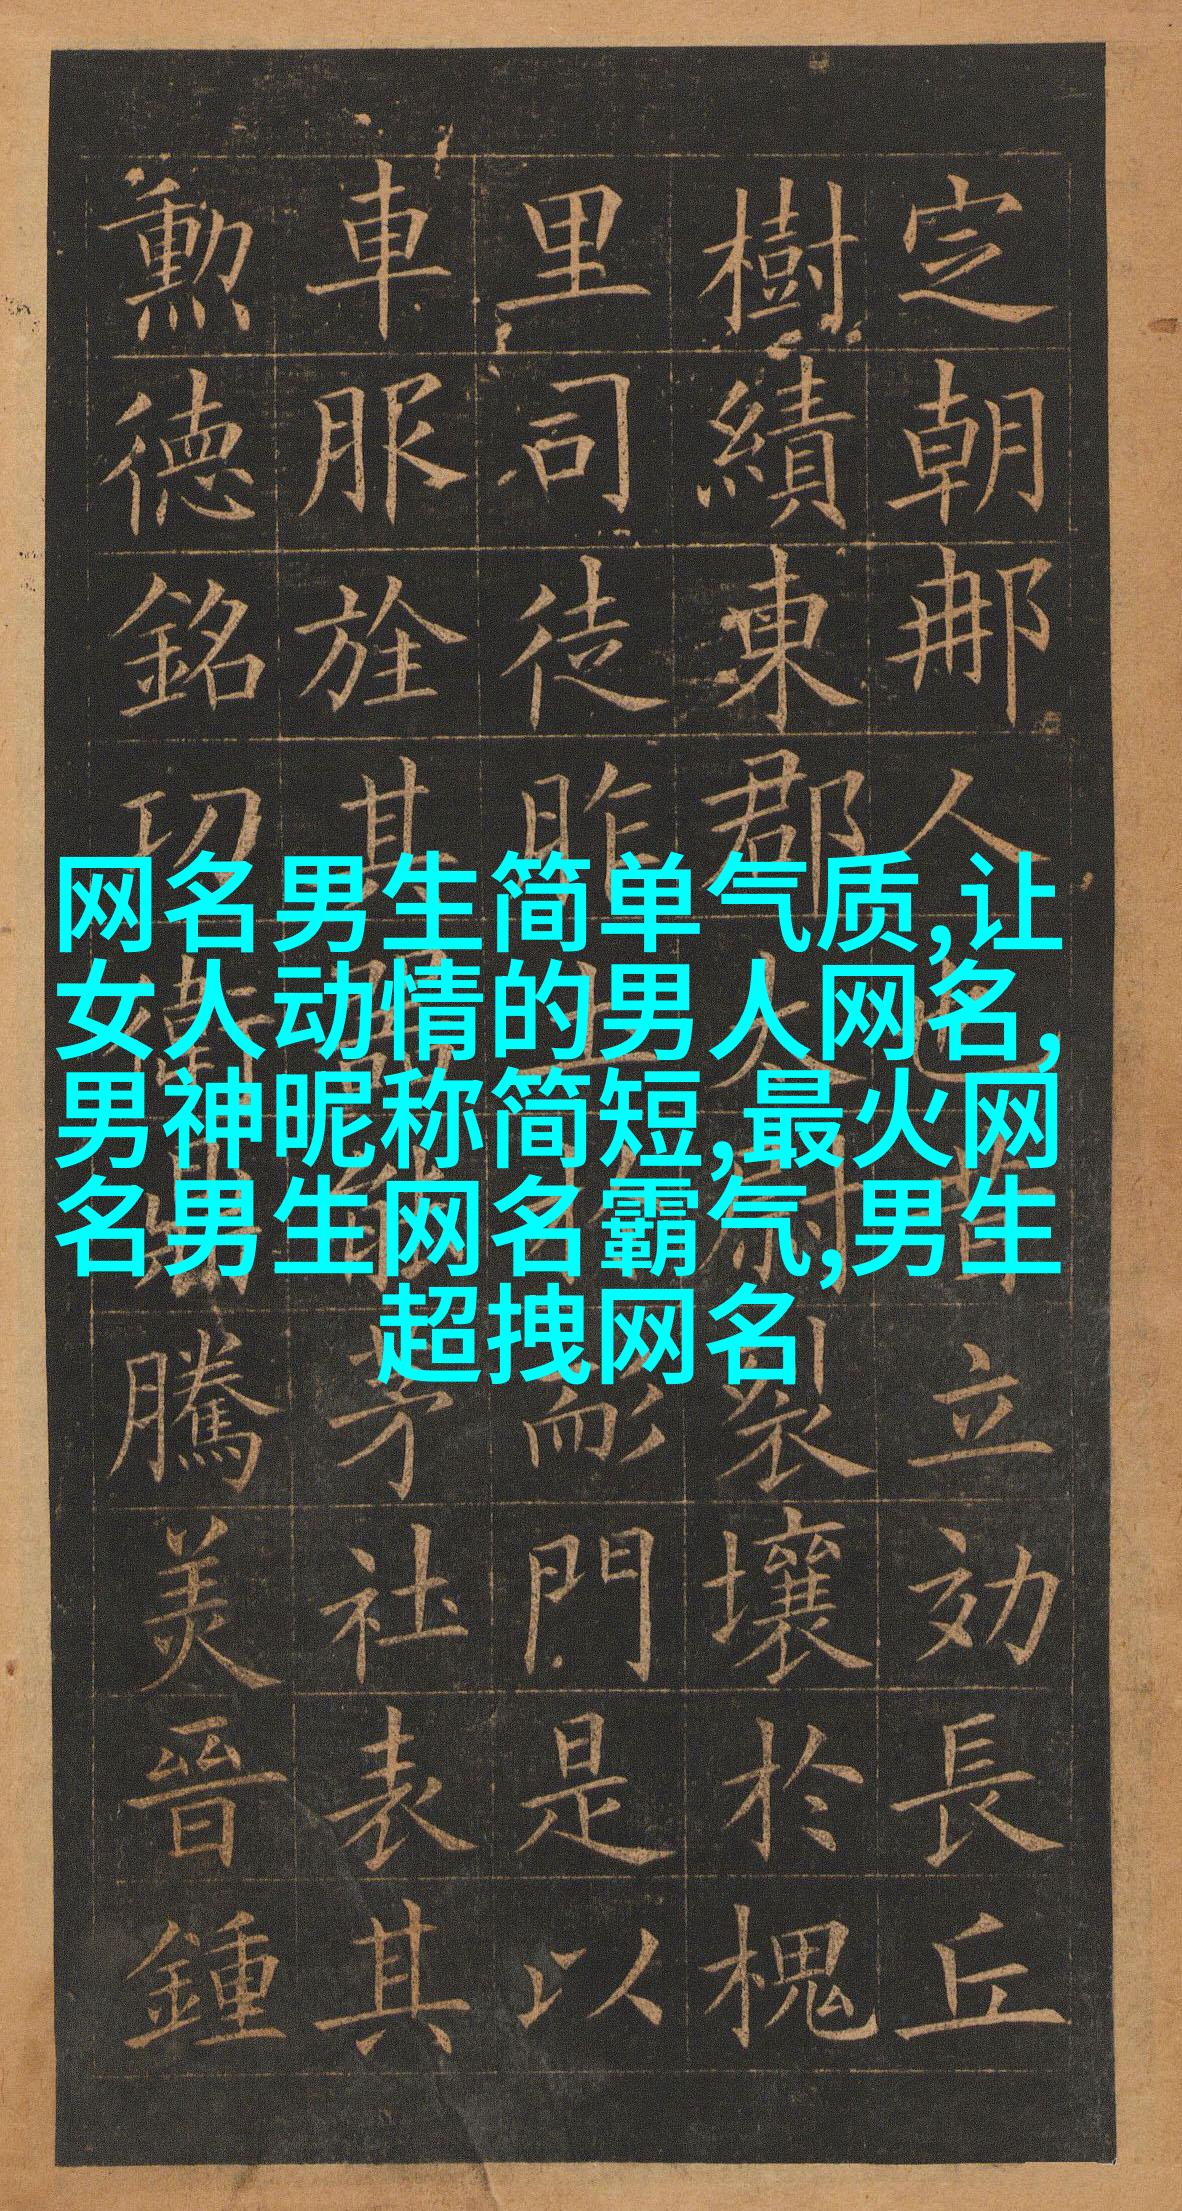 网名男生简单气质,让
女人动情的男人网名,
男神昵称简短,最火网
名男生网名霸气,男生
超拽网名
定朝那人也昔立効長丘
樹績東郡太尉裂壤於槐
里司徒昨土耏門是以
車服旌其器能茅社表其
勳德銘功衛鼎騰美晉鍾